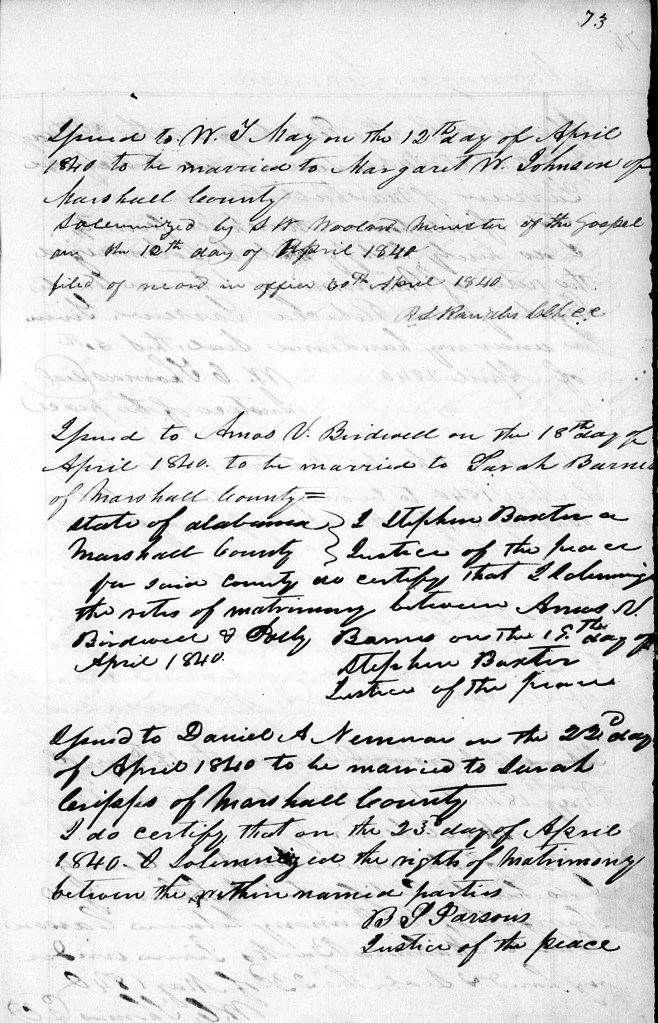 73
Issued to W. T May on the 12th day of April
1840 to be married to Margaret W. Johnson of
Marshall County
Solemnized by S W Minister of the Gospel
on the 12th day of April 1840
filed of record in office 30th April 1840
Issued to Amos V. Birdwell on the 18th day of
April 1840. to be married to Sarah Barnes
of Marshall County =
State of alabama } I Stephen Baxter a
Marshall County } Justice of the peace
for said county do certify that I
the rites of matrimony between Amos V.
Birdwell & Polly Barnes on the 19th day of
April 1840. Stephen Baxter
Justice of the peace
Issued to Daniel A on the 22d day
of April 1840 to be married to Sarah
Cripps of Marshall County
I do certify that on the 23d day of April
1840. I Solemnized the rights of Matrimony
between the within named parties
B P Parsons
Justice of the peace